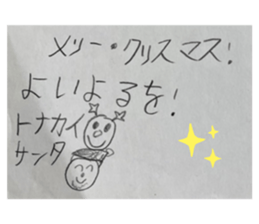 メリー・クリスマス!
よいよるを!
トナカイ
サンタ